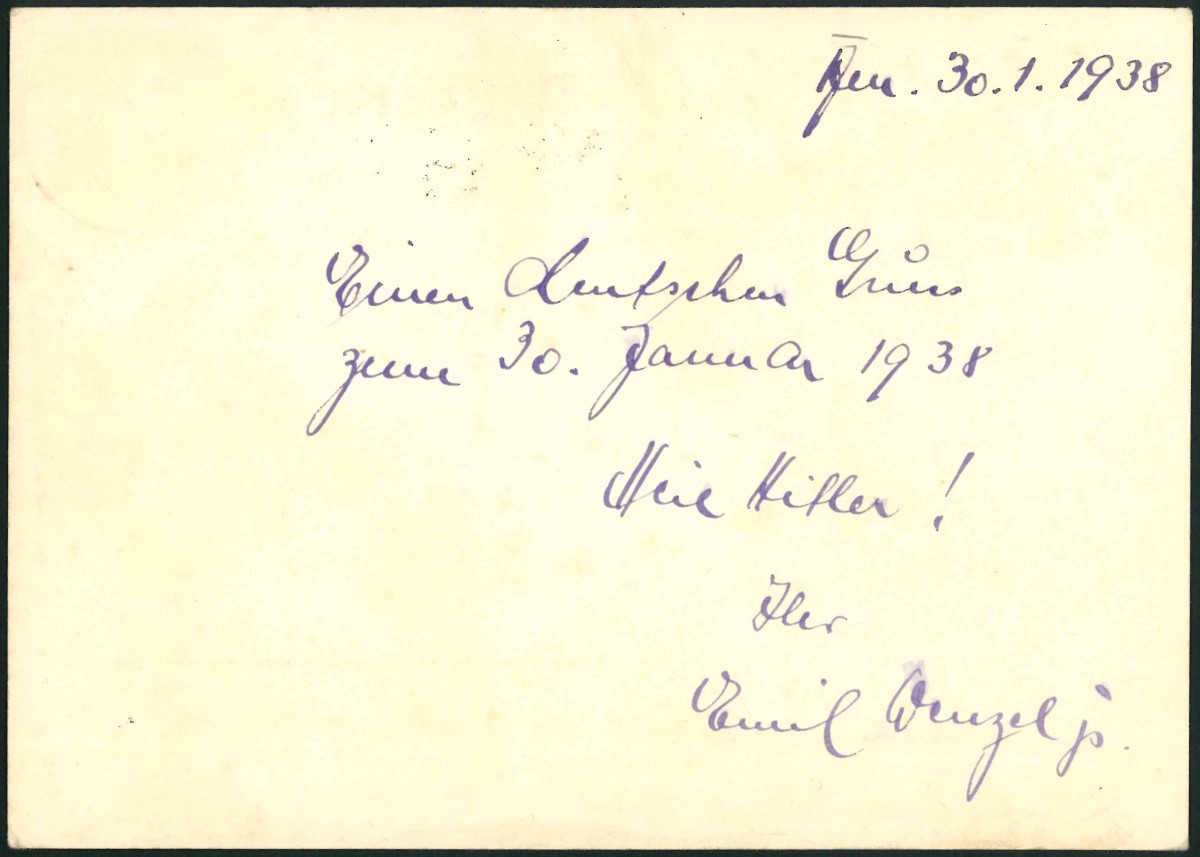 30.1.1938
Einen deutschen Gruss
zum 30. Januar 1938
Heil Hitler!
Ihr
Emil Wenzel jr.